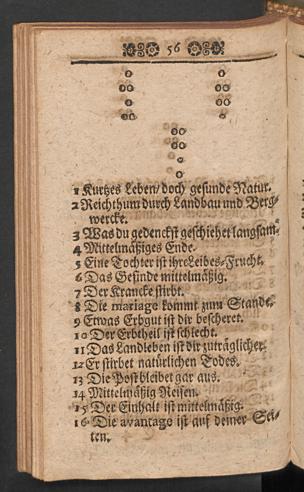 56
1 Kurtzes Leben/ doch gesunde Natur.
2 Reichthum durch Landbau und Berg-
wercke.
3 Was du gedenckst geschiehet langsam.
4 Mittelmäßiges Ende.
5 Eine Tochter ist ihre Leibes-Frucht.
6 Das Gesinde mittelmäßig.
7 Der Krancke stirbt.
8 Die mariage kommt zum Stande.
9 Etwas Erbgut ist dir bescheret.
10 Der Erbtheil ist schlecht.
11 Das Landleben ist dir zuträglicher.
12 Er stirbet natürlichen Todes.
13 Die Post bleibet gar aus.
14 Mittelmäßig Reisen.
15 Der Einhalt ist mittelmäßig.
16 Die avantage ist auf deiner Sei-
ten.